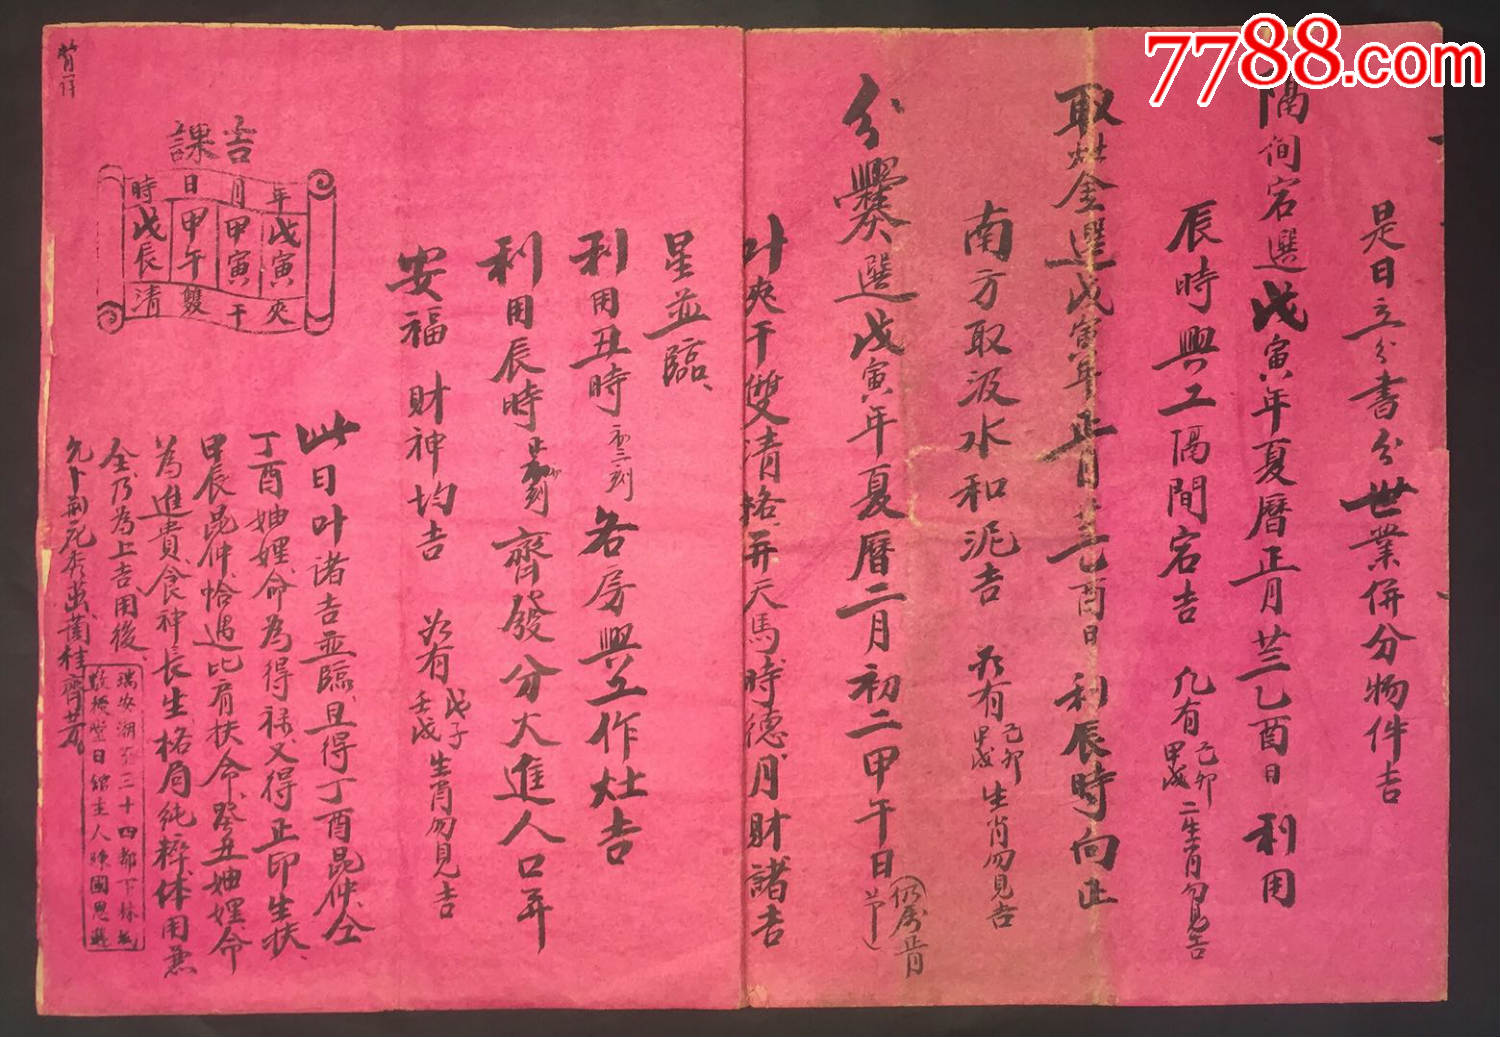 7788.com
是日立分書分世業併分物件吉
隔間宕選戊寅年夏曆正月廿三乙酉日利用
辰時興工隔間宕吉 凡有己卯甲戌二生肖勿見吉
取烘金選戊寅年正月廿三乙酉日利辰時向正
南方取汲水和泥吉 有己卯甲戌生肖勿見吉
分爨選戊寅年夏曆二月初二甲午日(仍屬正月節)
叶夾干雙清格并天馬時德月財諸吉
星並臨、
利用丑時正三刻各房興工作灶吉
利用辰時刻齊發分大進人口并
安福財神均吉 有戊子壬戌生肖勿見吉
吉課
年月日時
戊寅甲寅甲午戊辰
夾干雙清
此日叶諸吉並臨、且得丁酉昆仲、仝
丁酉妯娌命為得禄又得正印生扶、
甲辰昆仲恰遇比肩扶命、癸丑妯娌命
為進貴、食神長生、格局純粹、体用兼
全、乃為上吉、用後、
允卜荊花秀茂蘭桂齊芳
瑞安湖三十四都下林
堂日館主人陳國恩選